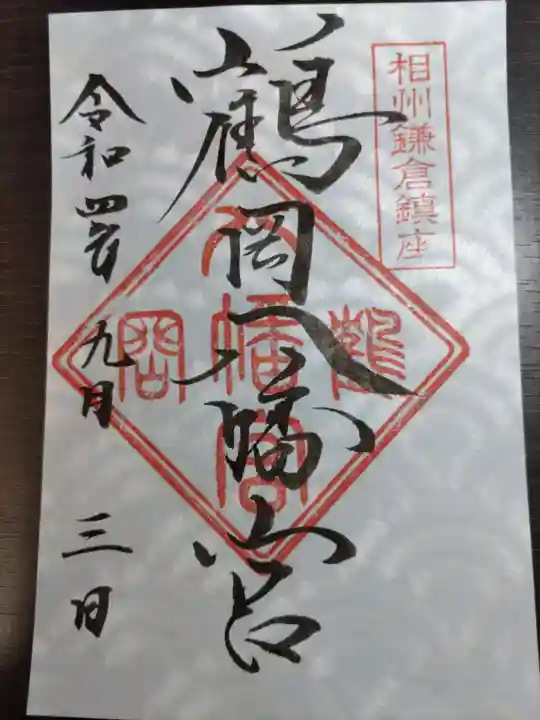 相州鎌倉鎮座
鶴岡八幡宮
鶴
八幡宮
岡
令和四年 九月 三日